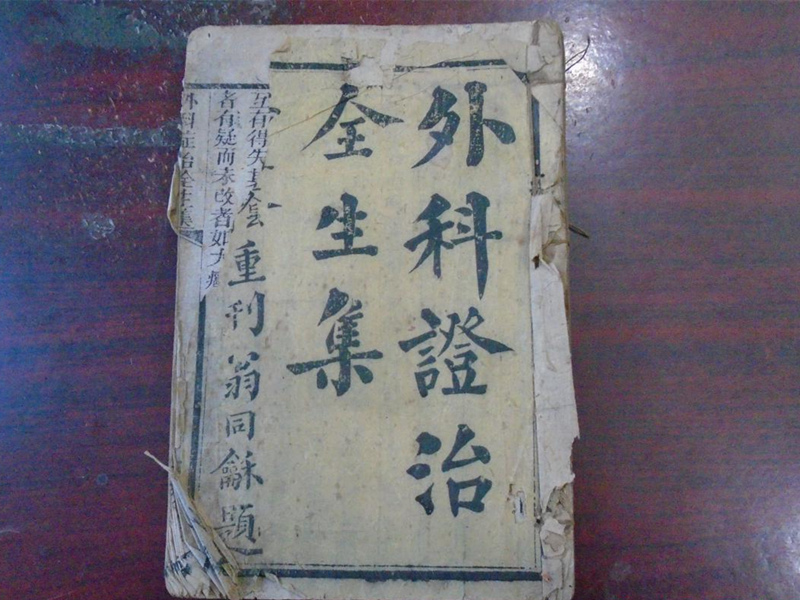 外科證治
全生集
重刊翁同龢題
互有得失
者有疑而未改者如
外科症治全生集